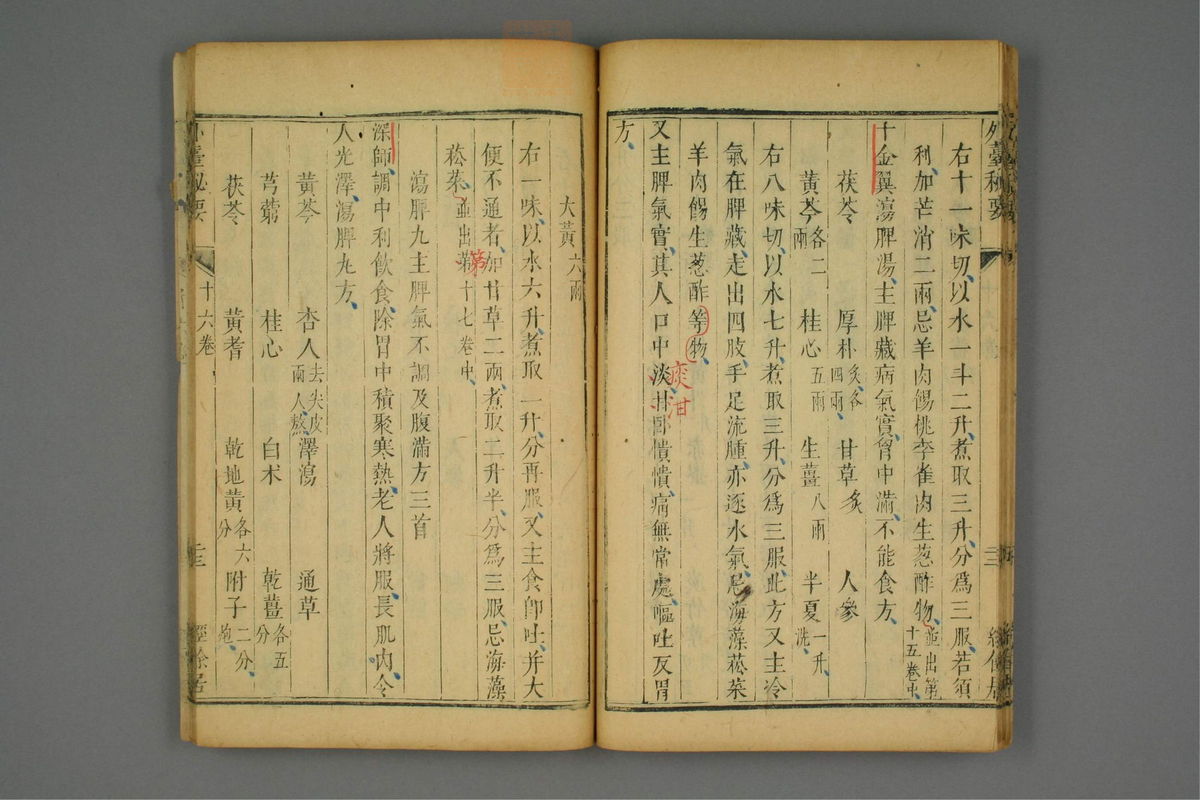 外臺秘要
右十一味切以水一斗二升煮取三升分爲三服若須
利加芒消二兩忌羊肉餳桃李雀肉生葱酢物並出第十五卷中
千金翼瀉脾湯主脾藏病氣實胷中滿不能食方
茯苓 厚朴炙各四兩 甘草炙 人參
黃芩各二兩 桂心五兩 生薑八兩 半夏一升洗
右八味切以水七升煮取三升分爲三服此方又主冷
氣在脾藏走出四肢手足流腫亦逐水氣忌海藻菘菜
羊肉餳生葱酢等物
又主脾氣實其人口中淡甘臥憒憒痛無常處嘔吐反胃
痰泔
方
大黃六兩
右一味以水六升煮取一升分再服又主食卽吐并大
便不通者加甘草二兩煮取二升半分爲三服忌海藻
菘菜並出第十七卷中
第
瀉脾丸主脾氣不調及腹滿方三首
深師調中利飲食除胃中積聚寒熱老人將服長肌肉令
人光澤瀉脾丸方
黃芩 杏人去尖皮兩人熬 澤瀉 通草
芎藭 桂心 白朮 乾薑各五分
茯苓 黃耆 乾地黃各六分 附子二分炮
外臺秘要 十六卷 二十三 經餘居